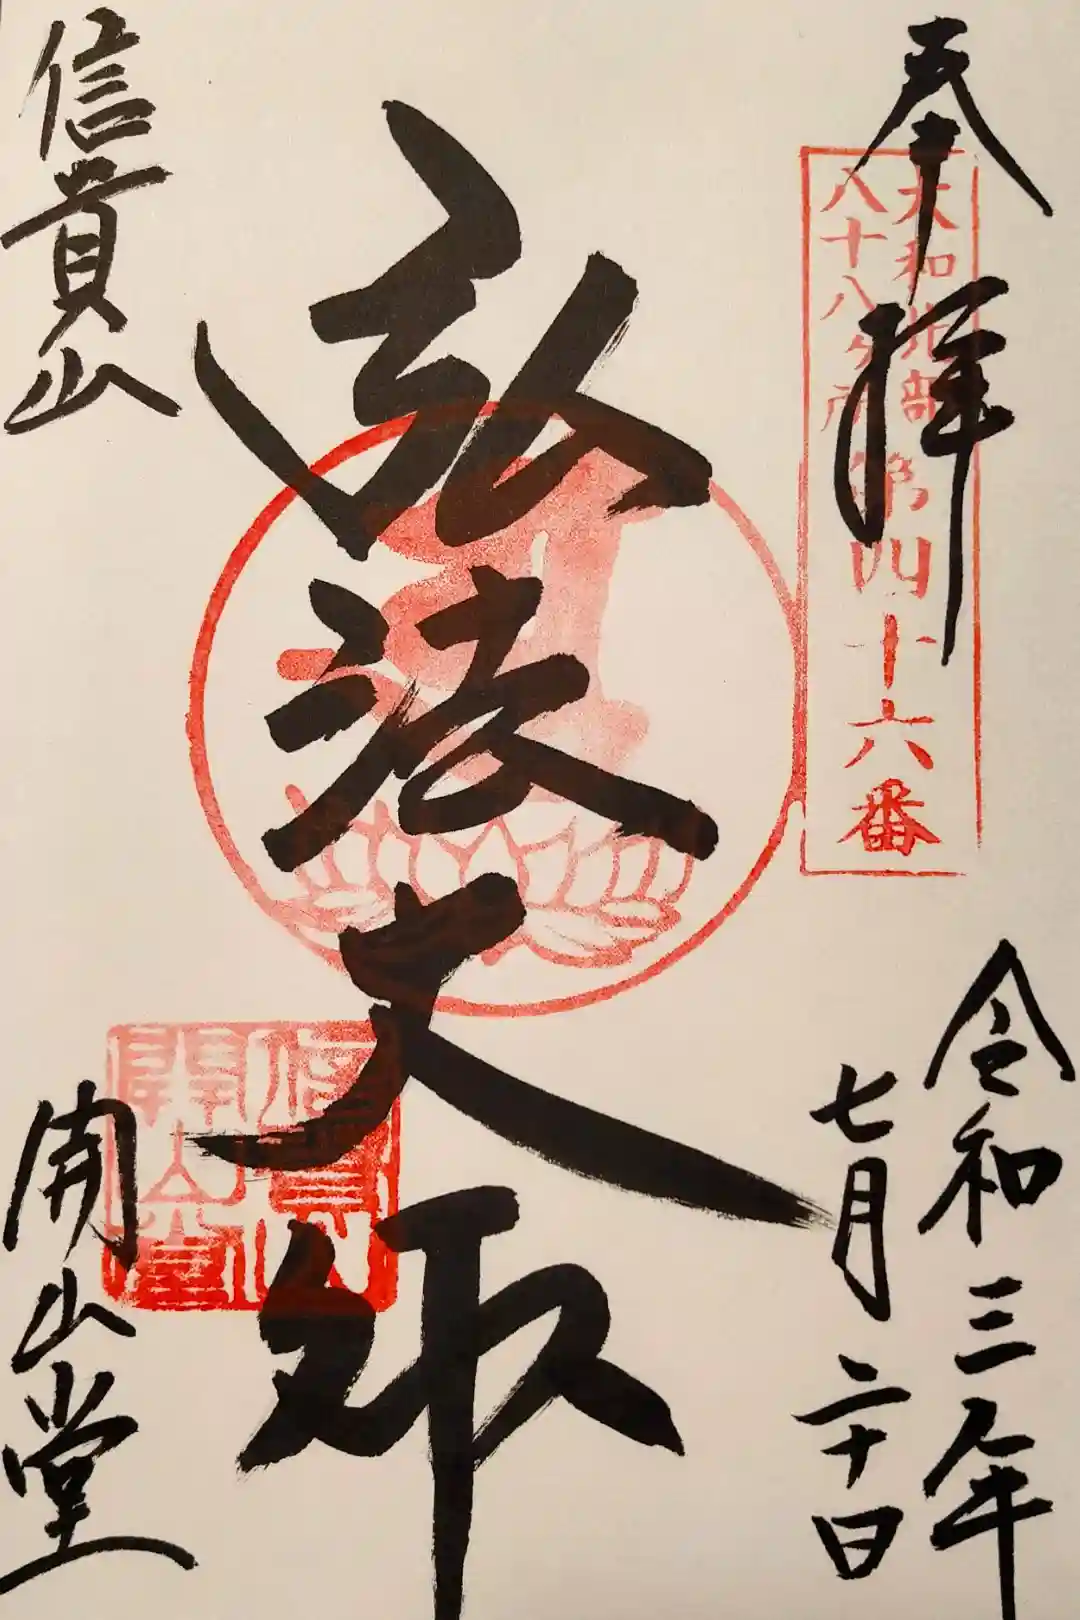 奉拝
大和北部
八十八ヶ所
第四十六番
令和三年
七月二十日
弘法大師
信貴山
開山堂
信貴山
開山堂